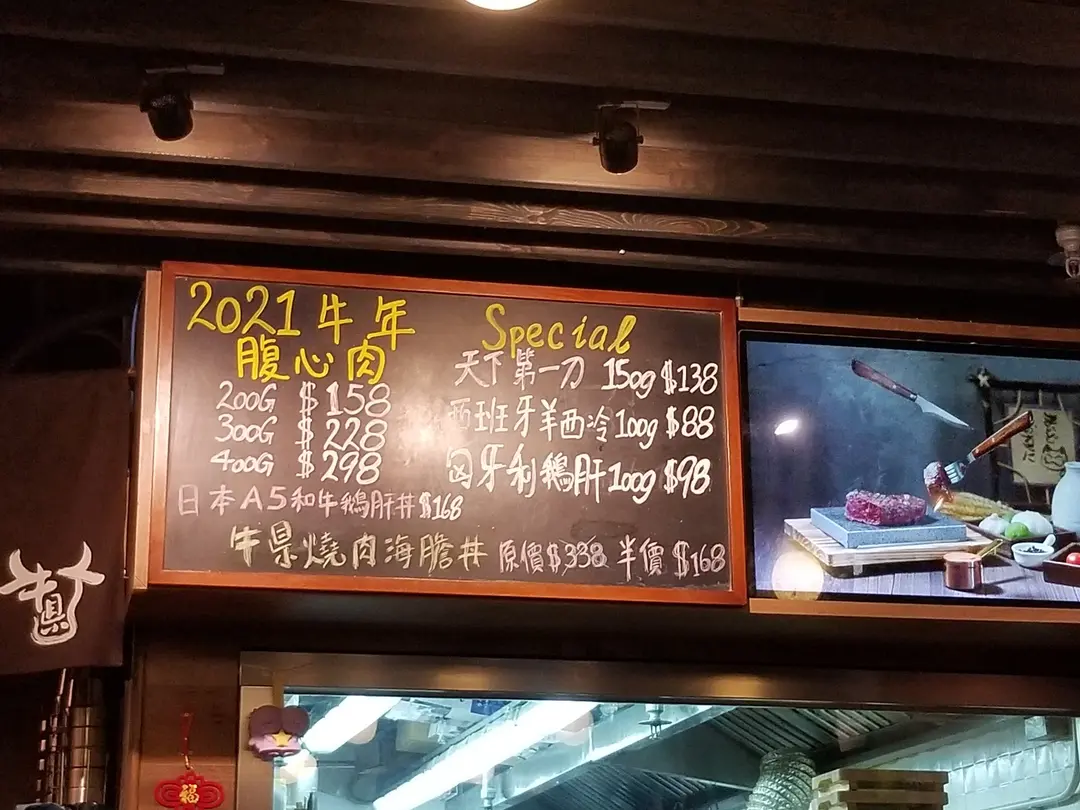 2021 牛年
腹心肉
200G $158
300G $228
400G $298
日本A5和牛鵝肝丼 $168
Special
天下第一刀 150g $138
西班牙羊西冷 100g $88
匈牙利鵝肝 100g $98
牛県燒肉海膽丼 原價$338 半價 $168
牛県
福